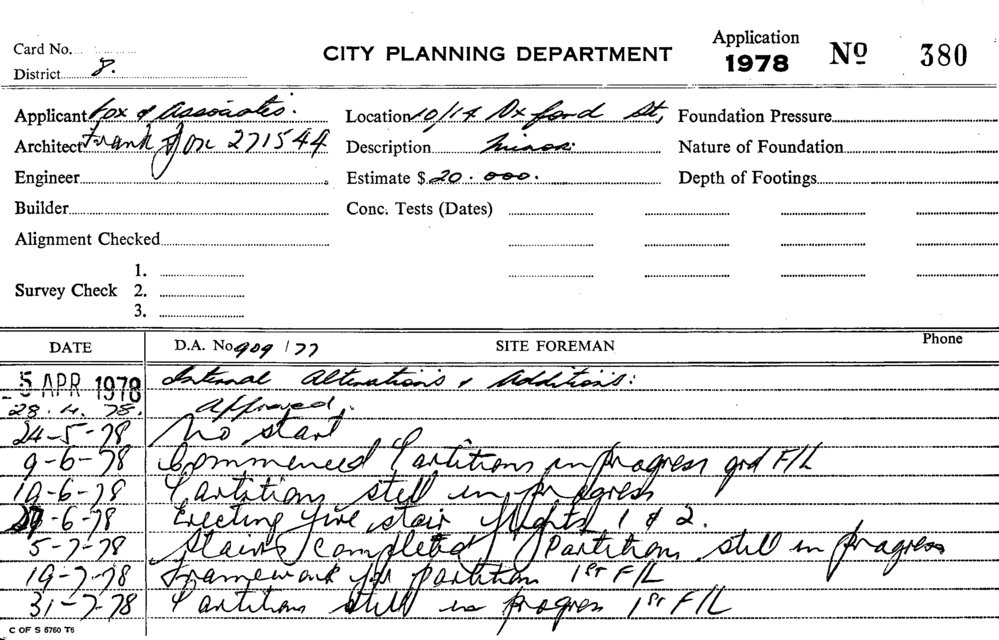 Card No.
CITY PLANNING DEPARTMENT
Application
1978
No 380
District 8.
Applicant Fox & Associates.
Location 10/14 Oxford St,
Foundation Pressure
Architect Frank Fox 271544
Description Minor.
Nature of Foundation
Engineer
Estimate $ 20.000.
Depth of Footings
Builder
Conc. Tests (Dates)
Alignment Checked
Survey Check
1.
2.
3.
DATE
D.A. No 909/77
SITE FOREMAN
Phone
- 5 APR 1978 Internal Alterations & Additions:
28.4.78. Approved.
24-5-78 No start
9-6-78 Commenced Partitions in progress grd F/L
19-6-78 Partitions still in progress
29-6-78 Erecting fire stair flights 1 & 2.
5-7-78 Stairs completed Partitions still in progress
19-7-78 Framework for partition 1st F/L
31-7-78 Partitions still in progress 1st F/L
C OF S 6760 T6